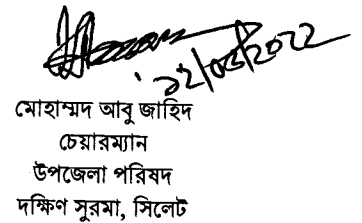 মোহাম্মদ আবু জাহিদ
চেয়ারম্যান
উপজেলা পরিষদ
দক্ষিণ সুরমা, সিলেট